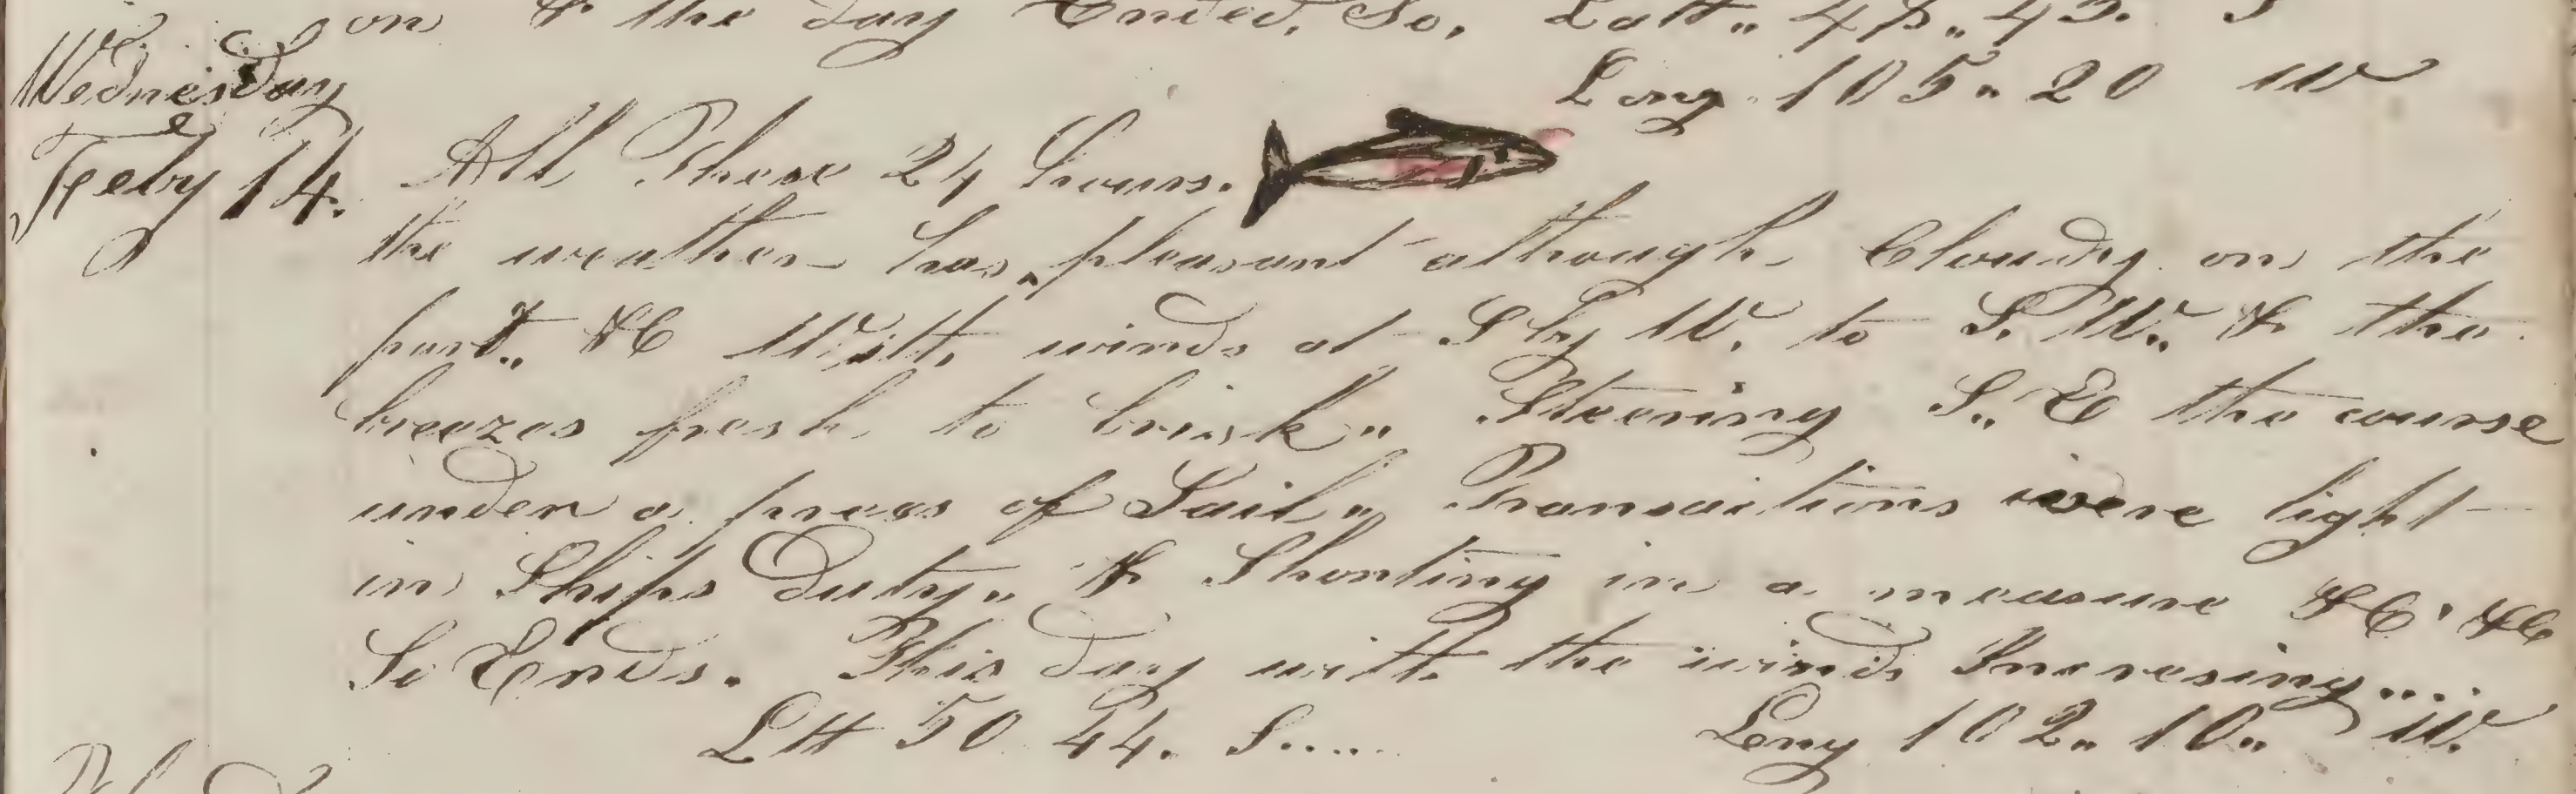 on & the day Ended, So, Latt" 48" 45. S
Long. 105" 20 W
Wednesday
Feeby 14. All These 24 hours.
the weather has pleasant although Cloudy on the
part" &C With winds at S by W. to S. W" & the
breezes fresh to brisk" Steering S" E the course
under a press of Sail" Transactions were light
in Ships duty" & Shonting in a measure &C' &C
So Ends. This day with the winds Incresing....
Ltt 50 44. S.....
Long 102" 10" W.